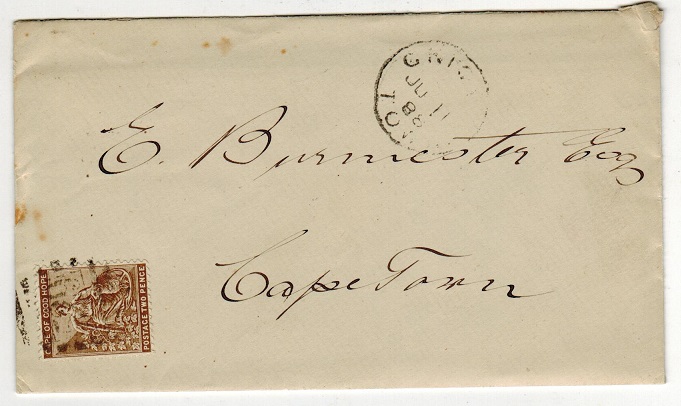 GRIQ
TOW
JU 11
88
E. Burmester Esq
Cape Town
CAPE OF GOOD HOPE
POSTAGE TWO PENCE